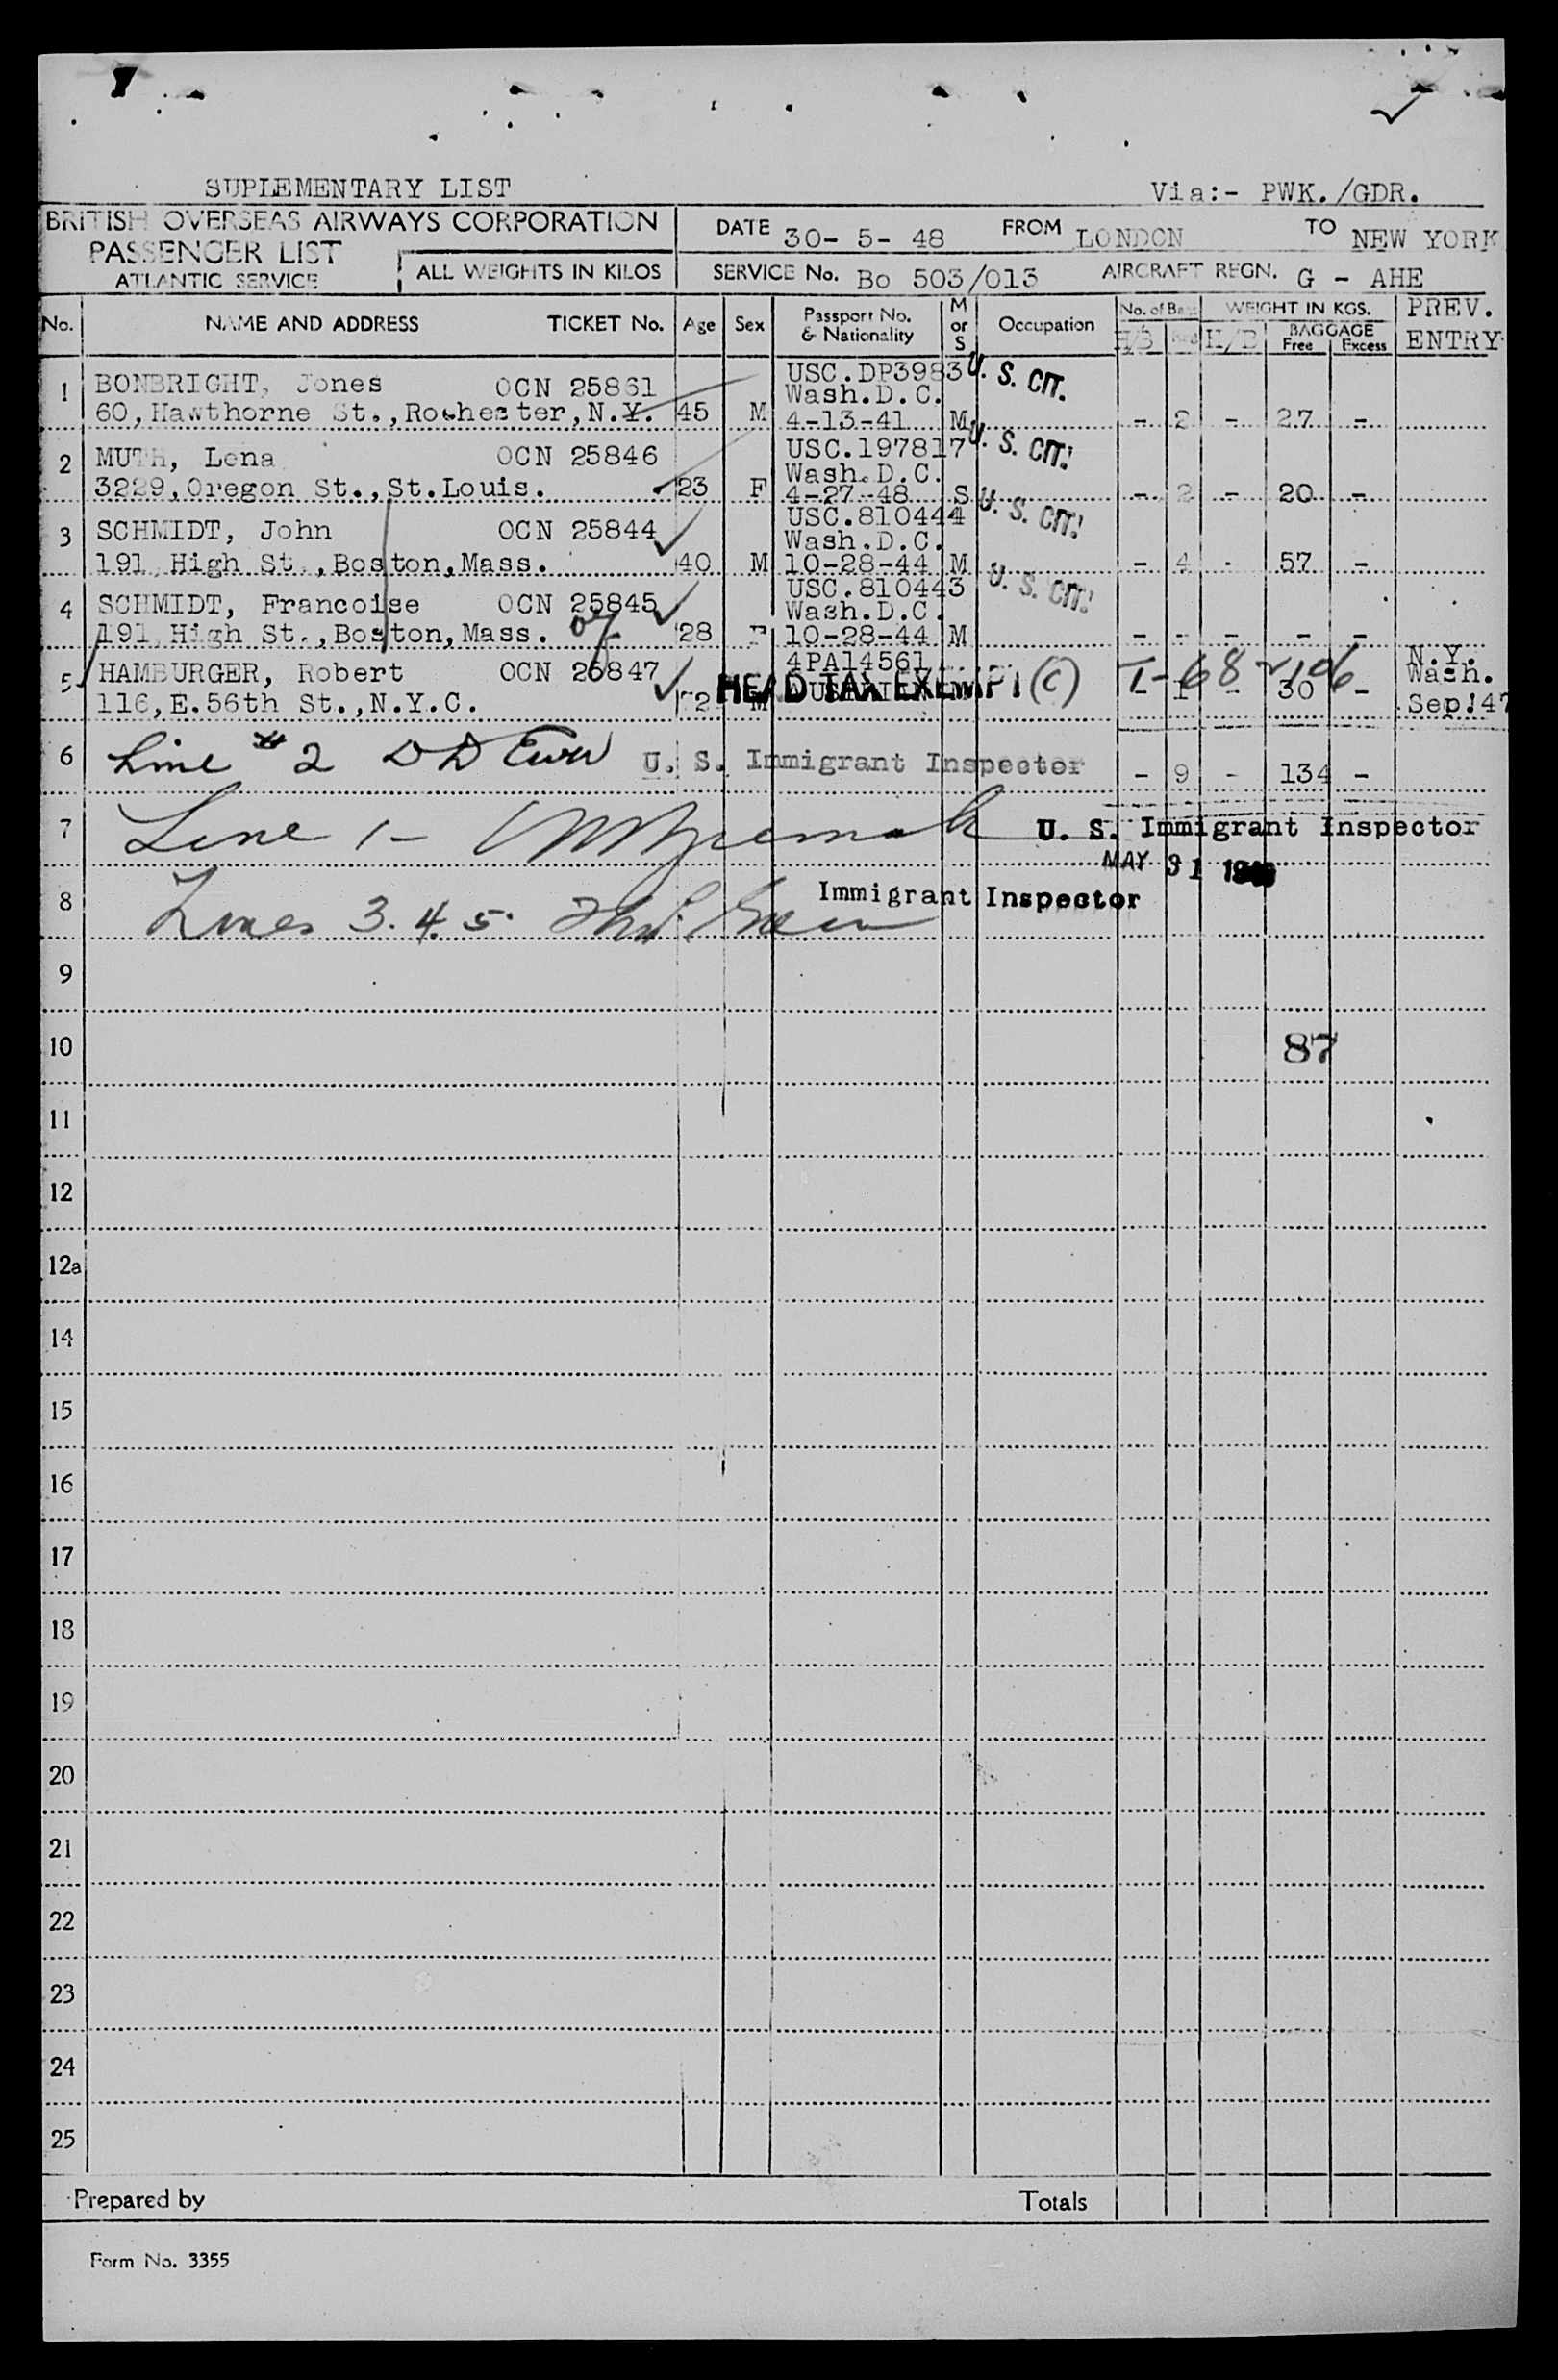 SUPLEMENTARY LIST
Via:- PWK./GDR.
BRITISH OVERSEAS AIRWAYS CORPORATION
PASSENGER LIST
ATLANTIC SERVICE
ALL WEIGHTS IN KILOS
DATE 30- 5- 48 FROM LONDON TO NEW YORK
SERVICE No. Bo 503/013 AIRCRAFT REGN. G - AHE
No. NAME AND ADDRESS TICKET No. Age Sex Passport No. & Nationality M or S Occupation No. of Bags WEIGHT IN KGS. PREV. ENTRY
H/B H/B BAGGAGE Free Excess
1 BONBRIGHT, Jones OCN 25861 USC.DP3983 U. S. CIT.
Wash.D.C.
60,Hawthorne St.,Rochester,N.Y. 45 M 4-13-41 M - 2 - 27 -
2 MUTH, Lena OCN 25846 USC.197817 U. S. CIT.
Wash.D.C.
3229,Oregon St.,St.Louis. 23 F 4-27-48 S - 2 - 20 -
3 SCHMIDT, John OCN 25844 USC.810444 U. S. CIT.
Wash.D.C.
191 High St.,Boston,Mass. 40 M 10-28-44 M - 4 - 57 -
4 SCHMIDT, Francoise OCN 25845 USC.810443 U. S. CIT.
Wash.D.C.
191 High St.,Boston,Mass. 28 F 10-28-44 M - - - - -
5 HAMBURGER, Robert OCN 25847 4PA14561 N.Y.
HEAD TAX EXEMPT (C) Wash.
116,E.56th St.,N.Y.C. M - 1 - 30 - Sep!47
6 Line # 2 U. S. Immigrant Inspector - 9 - 134 -
7 Line 1- U. S. Immigrant Inspector
MAY 31
8 Lines 3. 4. 5. Immigrant Inspector
9
10 87
11
12
12a
14
15
16
17
18
19
20
21
22
23
24
25
Prepared by Totals
Form No. 3355